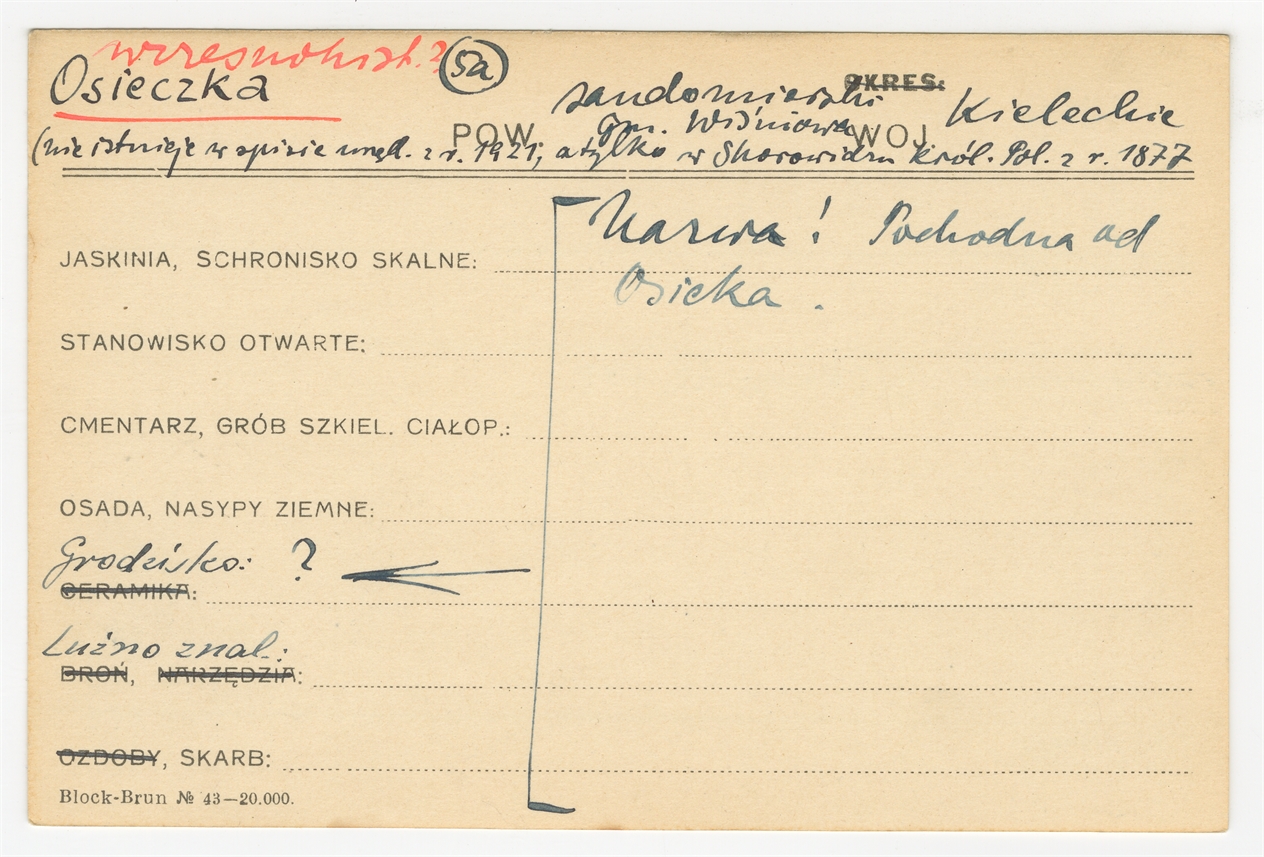 wczesnohist. ?
Osieczka 5a
OKRES:
sandomierski
POW. Gm. Wiśniowa WOJ. Kieleckie
(nie istnieje w spisie urzęd. z r. 1921, a tylko w Skorowidzu Król. Pol. z r. 1877
Nazwa! Pochodna od
JASKINIA, SCHRONISKO SKALNE:
Osieka.
STANOWISKO OTWARTE:
CMENTARZ, GRÓB SZKIEL. CIAŁOP.:
OSADA, NASYPY ZIEMNE:
Grodzisko: ?
CERAMIKA:
Luźno znal.:
BROŃ, NARZĘDZIA:
OZDOBY, SKARB:
Block-Brun № 43—20.000.